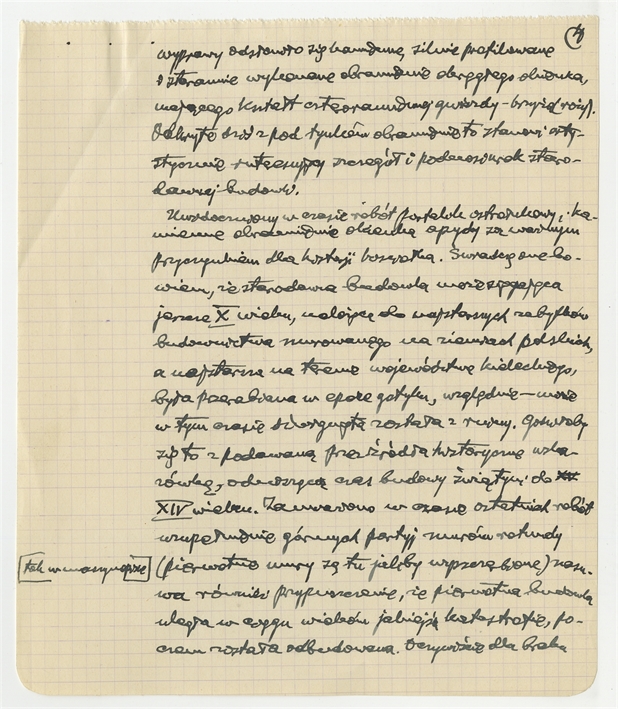 4
wyprawy odsłoniło się kamienne, silnie profilowane
i starannie wykonane obramienie okrągłego okienka,
mającego kształt czteroramiennej gwiazdy - krzyża (rozy).
Odkryte dziś z pod tynków obramienie to stanowi arty-
stycznie interesujący szczegół i podnosi urok staro-
dawnej budowli.
Uwidoczniony w czasie robót portalik ostrołukowy, i ka-
mienne obramienie okienka apsydy są ważnym
przyczynkiem dla historji kościołka. Świadczą one bo-
wiem, że starodawna budowla może sięgająca
jeszcze X wieku, należąca do najstarszych zabytków
budownictwa murowanego na ziemiach polskich,
a najstarsza na terenie województwa kieleckiego,
była przerabiana w epoce gotyku, względnie - może
w tym czasie dźwignięta została z ruiny. Gdziłoby
się to z podawaną przez źródła historyczne wska-
zówką, odnoszącą czas budowy świątyni do XV
XIV wieku. Zauważono w czasie ostatnich robót
uzupełnienie górnych partyj murów rotundy
tak w maszynopisie
(pierwotne mury są tu jakby wyszczerbione) nasu-
wa również przypuszczenie, że pierwotna budowla
uległa w ciągu wieków jakiejś katastrofie, po-
czem została odbudowana. Oczywiście dla braku